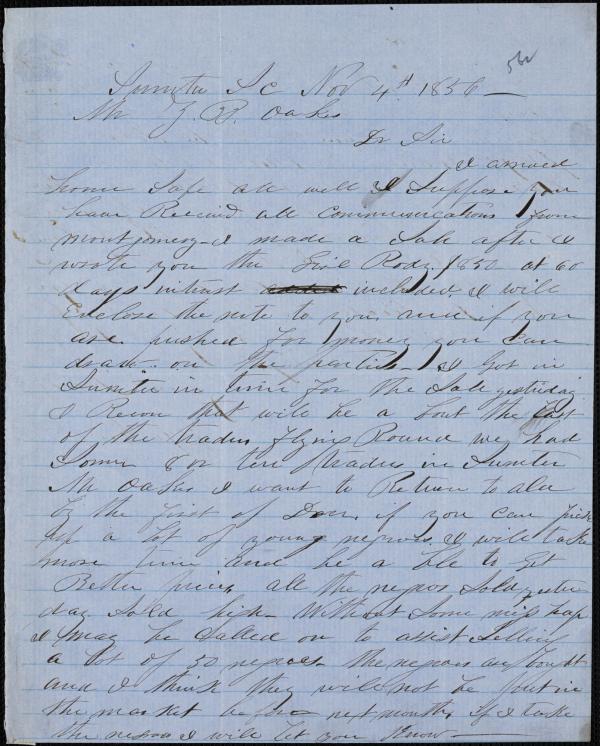 562
Sumter S C Nov 4th 1856
Mr Z. B. Oakes
Dr Sir
I arrived
home Safe all well I Suppose you
have Received all communications from
montgomery I made a Sale after I
wrote you the Girl $850 at 60
days intrest included, I will
Enclose the note to you, if you
are pushed for money you can
draw on the parties I Got in
Sumter in time for the Sale yesterday
I Recon that will be a bout the last
of the traders flying Round we had
Some 8 or ten traders in Sumter
Mr Oakes I want to Return to ala
by the first of Decr, if you can pick
up a lot of young negroes, I will take
more time and be a ble to get
Better prices, all the negros Sold yester
day Sold high Without Some miss hap
I may be Called on to assist Selling
a lot of 50 negroes the negroes are bought
and I think they will not be put in
the market before next month, if I take
the negroes I will let you Know